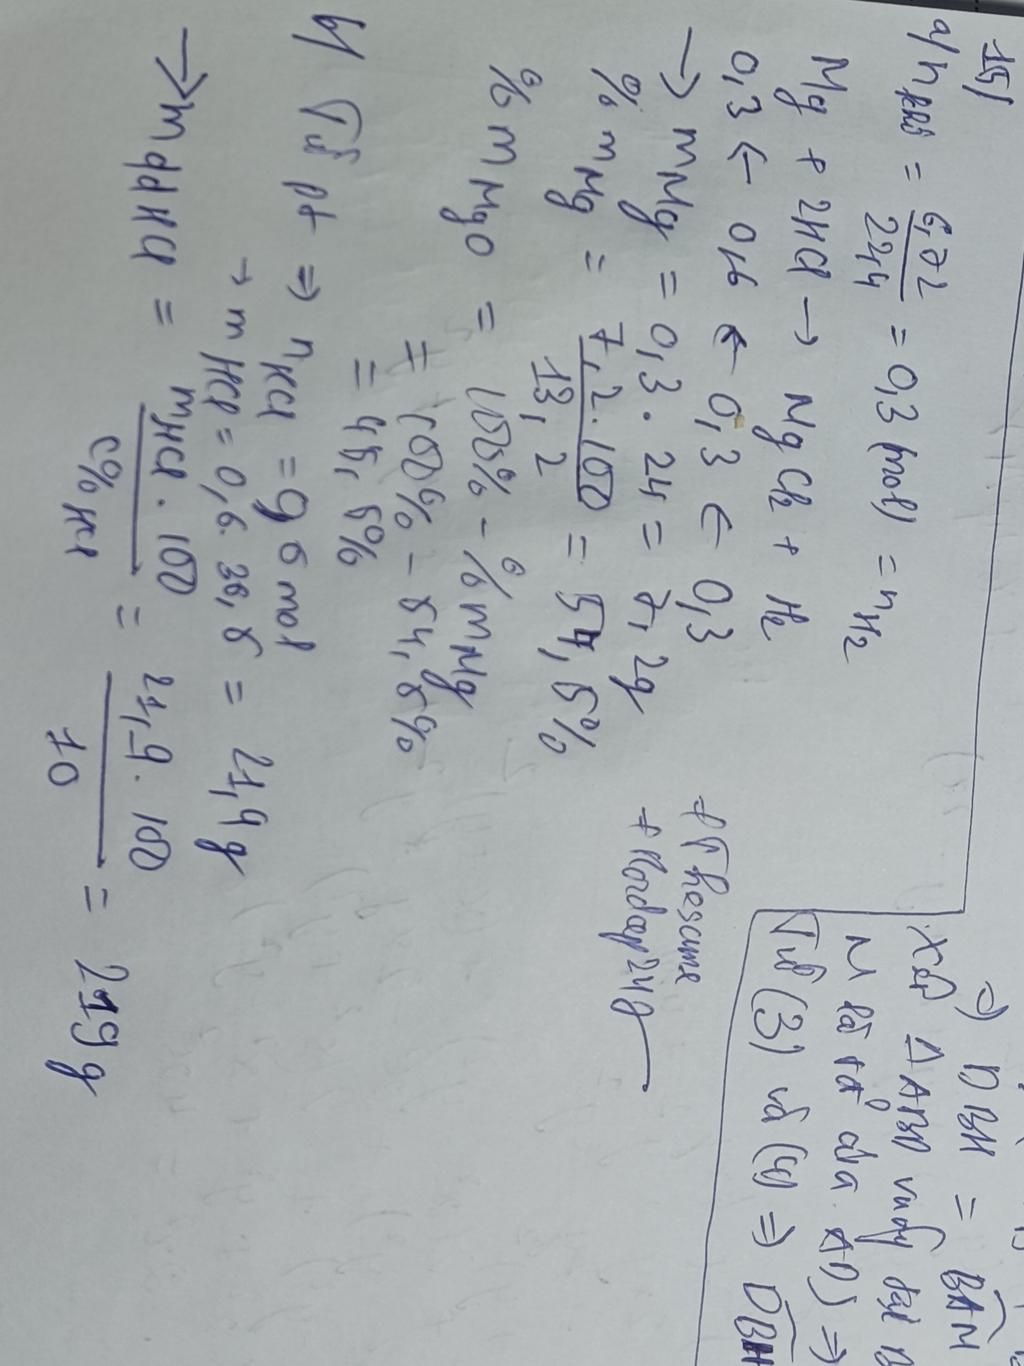 15/
a/ n khí = 6,72 / 22,4 = 0,3 (mol) = nH2
Mg + 2HCl → MgCl2 + H2
0,3 ← 0,6 ← 0,3 ← 0,3
→ mMg = 0,3 . 24 = 7,2g
% mMg = 7,2 . 100 / 13,2 = 54,5%
% mMgO = 100% - % mMg
= 100% - 54,5%
= 45,5%
b/ Từ pt ⇒ nHCl = 0,6 mol
→ mHCl = 0,6 . 36,5 = 21,9 g
→ mddHCl = mHCl . 100 / C%HCl = 21,9 . 100 / 10 = 219 g
⇒ DBH = BAM
Xét ΔABD vuông tại B
M là tđ của AD ⇒
Từ (3) và (4) ⇒ DBH